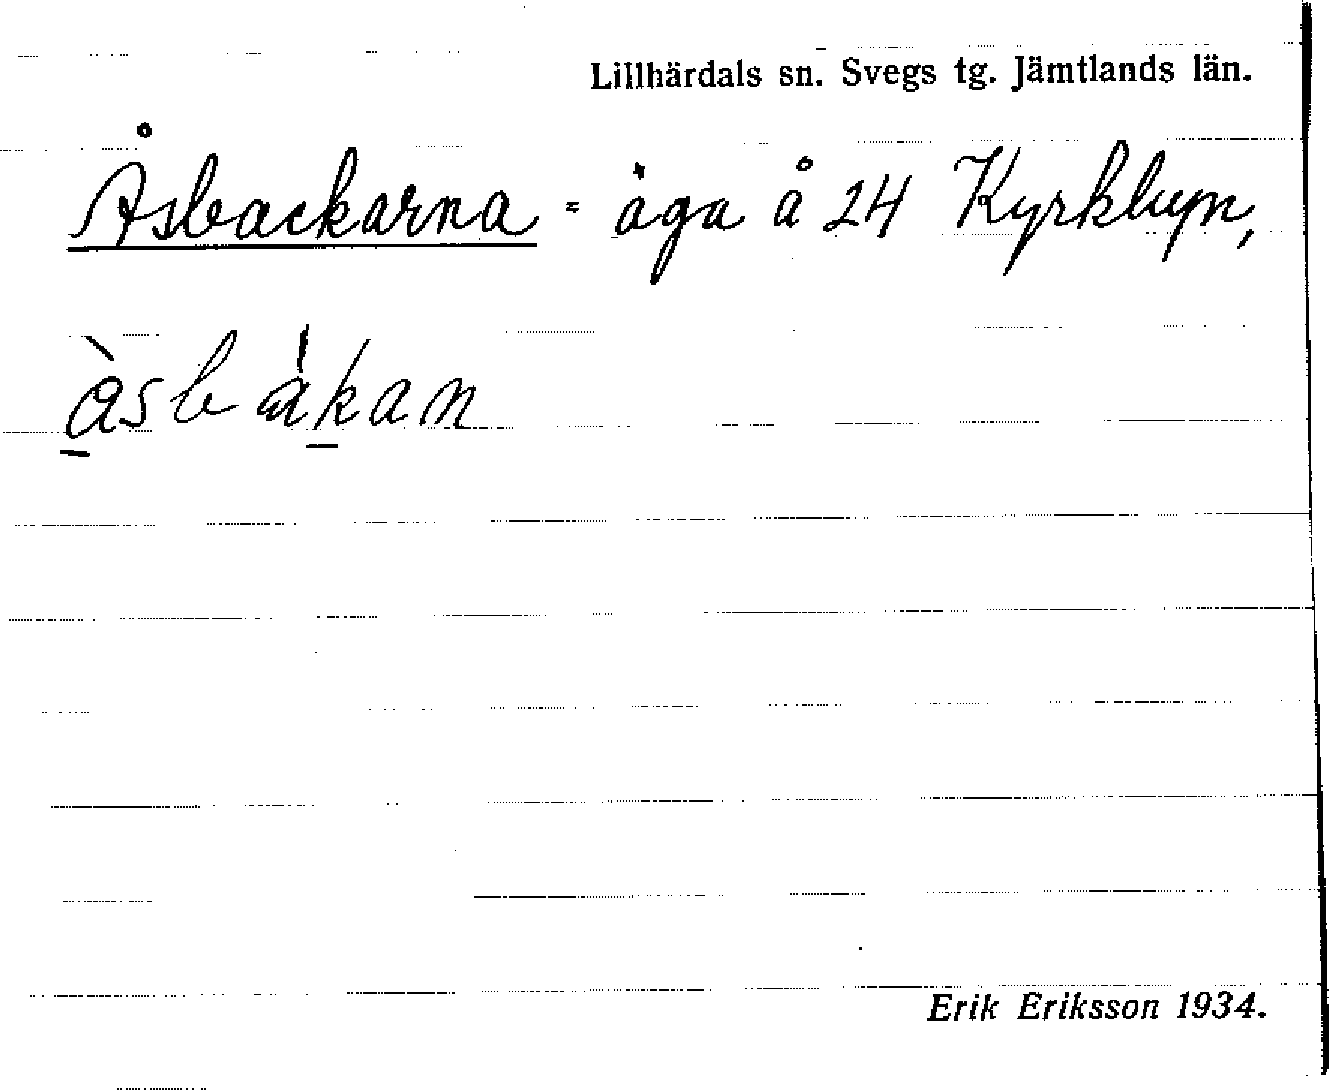 Lillhärdals sn. Svegs tg. Jämtlands län.
Åsbackarna = äga å 24 Kyrkbyn,
àsbákan
Erik Eriksson 1934.